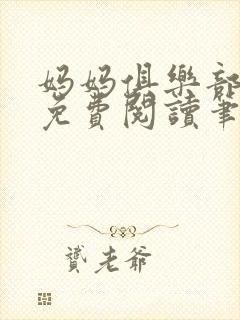 妈妈俱樂部
免費閱讀筆
贇老爺